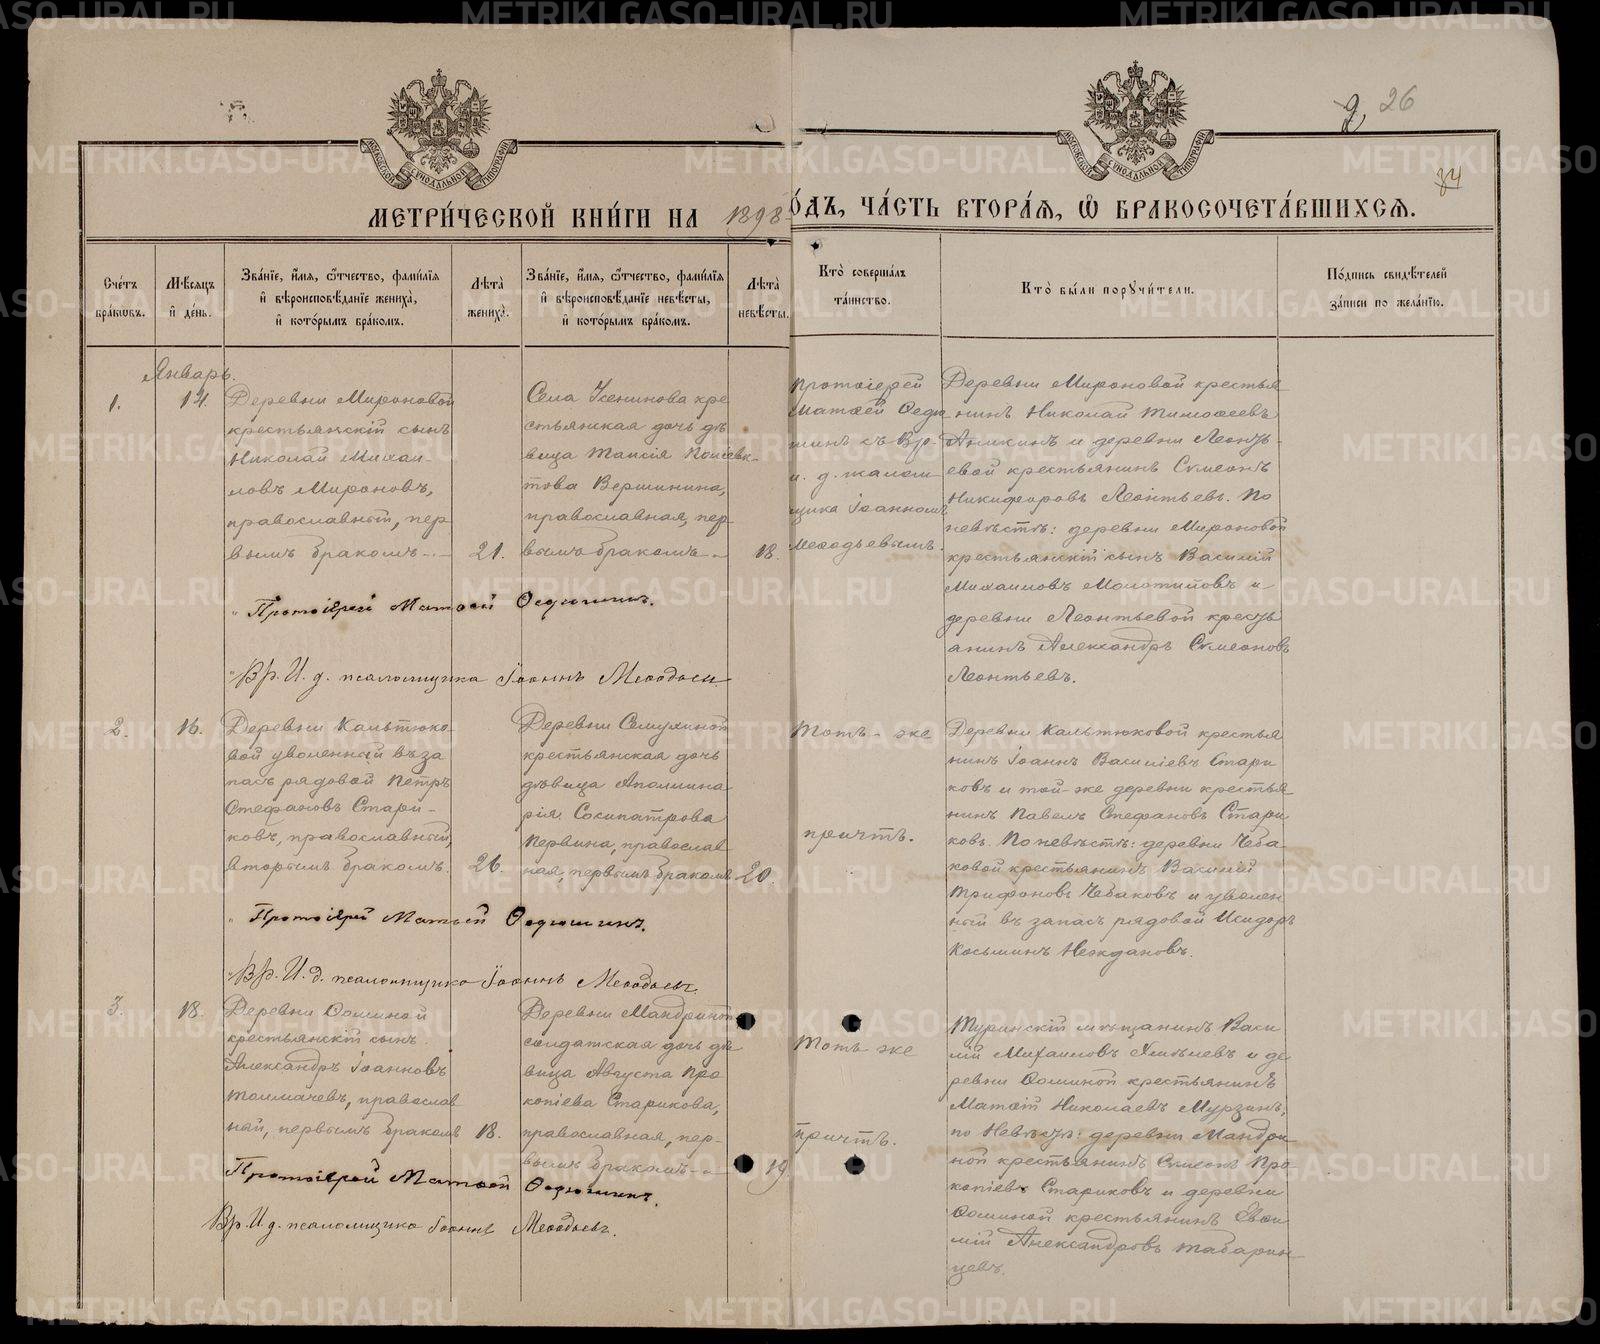 2 26
34
МЕТРИ́ЧЕСКОЙ КНИ́ГИ НА 1898 ГО́ДЪ, ЧА́СТЬ ВТОРА́Я, Ѿ БРАКОСОЧЕТА́ВШИХСЯ.
Сче́тъ бра́кωвъ.
Мѣ́сяцъ и де́нь.
Зва́нїе, и́мя, ѿтчество, фами́лїя
и вѣроисповѣ́данїе жениха̀,
и кото́рымъ бра́комъ.
Лѣта̀ жениха̀.
Зва́нїе, и́мя, ѿтчество, фами́лїя
и вѣроисповѣ́данїе невѣ́сты,
и кото́рымъ бра́комъ.
Лѣта̀ невѣ́сты.
Кто̀ соверша́лъ
та́инство.
Кто̀ бы́ли поручи́тели.
По́дпись свидѣ́телей
за́писи по жела́нїю.
Январь.
1.
14.
Деревни Мироновой
крестьянскій сынъ
Николай Михаи-
ловъ Мироновъ,
православный, пер
вымъ бракомъ
21.
Села Усенинова кре
стьянская дочь дѣ
вица Таисія Поліевк-
това Вершинина,
православная, пер-
вымъ бракомъ
18.
Протоіерей
Матѳей Ѳедю
шинъ съ Вр.
и. д. псалом
щика Іоанномъ
Меѳодьевымъ.
Деревни Мироновой крестья
нинъ Николай Тимоѳеевъ
Аникинъ и деревни Леонть-
евой крестьянинъ Симеонъ
Никифоровъ Леонтьевъ. По
невѣстѣ: деревни Мироновой
крестьянскій сынъ Василій
Михаиловъ Молотиловъ и
деревни Леонтьевой кресть
янинъ Александръ Симеоновъ
Леонтьевъ.
Протоіерей Матѳей Ѳедюшинъ.
Вр. И. д. псаломщика Іоаннъ Меѳодьевъ
2.
16.
Деревни Кальтюко-
вой уволенный въ за
пасъ рядовой Петръ
Стефановъ Стари-
ковъ, православный,
вторымъ бракомъ.
26.
Деревни Семухиной
крестьянская дочь
дѣвица Аполлина
рія Сосипатрова
Первина, православ
ная, первымъ бракомъ
20.
Тотъ-же
причтъ.
Деревни Кальтюковой крестья
нинъ Іоаннъ Василіевъ Стари
ковъ и той-же деревни крестья
нинъ Павелъ Стефановъ Стари
ковъ. По невѣстѣ: деревни Чеба
ковой крестьянинъ Василій
Трифоновъ Чебаковъ и уволен
ный въ запасъ рядовой Исидоръ
Косьминъ Неждановъ.
Протоіерей Матѳей Ѳедюшинъ.
Вр. И. д. псаломщика Іоаннъ Меѳодьевъ.
3.
18.
Деревни Ѳоминой
крестьянскій сынъ
Александръ Іоанновъ
Толмачевъ, православ
ный, первымъ бракомъ
18.
Деревни Мандриной
солдатская дочь дѣ
вица Августа Про
копіева Старикова,
православная, пер-
вымъ бракомъ
19.
Тотъ-же
причтъ.
Туринскій мѣщанинъ Васи
лій Михаиловъ и де
ревни Ѳоминой крестьянинъ
Матѳій Николаевъ Мурзинъ,
по Невѣстѣ: деревни Мандри
ной крестьянинъ Симеонъ Про-
копіевъ Стариковъ и деревни
Ѳоминой крестьянинъ
Александровъ Табарин-
цевъ.
Протоіерей Матѳей Ѳедюшинъ.
Вр. И д. псаломщика Іоаннъ Меѳодьевъ.
METRIKI.GASO-URAL.RU